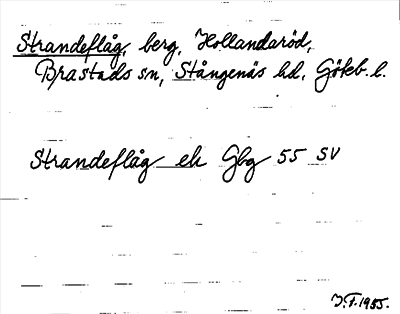 Strandeflåg, berg, Hollandaröd,
Brastads sn, Stångenäs hd, Göteb. l.
Strandeflåg ek Gbg 55 SV
J.F. 1955.